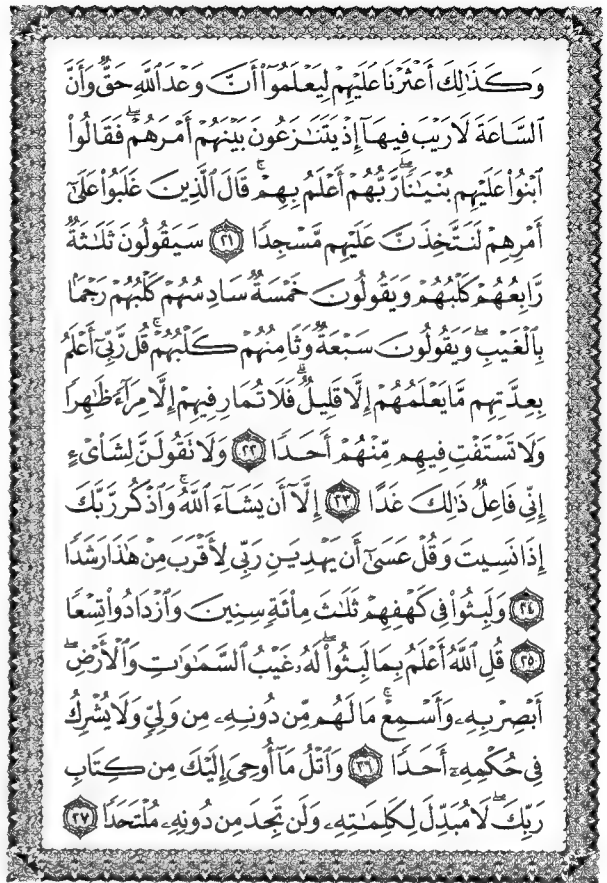 وَكَذَٰلِكَ أَعْثَرْنَا عَلَيْهِمْ لِيَعْلَمُوٓا۟ أَنَّ وَعْدَ ٱللَّهِ حَقٌّ وَأَنَّ
ٱلسَّاعَةَ لَا رَيْبَ فِيهَآ إِذْ يَتَنَٰزَعُونَ بَيْنَهُمْ أَمْرَهُمْ ۖ فَقَالُوا۟
ٱبْنُوا۟ عَلَيْهِم بُنْيَٰنًا ۖ رَّبُّهُمْ أَعْلَمُ بِهِمْ ۚ قَالَ ٱلَّذِينَ غَلَبُوا۟ عَلَىٰٓ
أَمْرِهِمْ لَنَتَّخِذَنَّ عَلَيْهِم مَّسْجِدًا ٢١ سَيَقُولُونَ ثَلَٰثَةٌ
رَّابِعُهُمْ كَلْبُهُمْ وَيَقُولُونَ خَمْسَةٌ سَادِسُهُمْ كَلْبُهُمْ رَجْمًۢا
بِٱلْغَيْبِ ۖ وَيَقُولُونَ سَبْعَةٌ وَثَامِنُهُمْ كَلْبُهُمْ ۚ قُل رَّبِّىٓ أَعْلَمُ
بِعِدَّتِهِم مَّا يَعْلَمُهُمْ إِلَّا قَلِيلٌ ۗ فَلَا تُمَارِ فِيهِمْ إِلَّا مِرَآءً ظَٰهِرًا
وَلَا تَسْتَفْتِ فِيهِم مِّنْهُمْ أَحَدًا ٢٢ وَلَا تَقُولَنَّ لِشَا۟ىْءٍ
إِنِّى فَاعِلٌ ذَٰلِكَ غَدًا ٢٣ إِلَّآ أَن يَشَآءَ ٱللَّهُ ۚ وَٱذْكُر رَّبَّكَ
إِذَا نَسِيتَ وَقُلْ عَسَىٰٓ أَن يَهْدِيَنِ رَبِّى لِأَقْرَبَ مِنْ هَٰذَا رَشَدًا
٢٤ وَلَبِثُوا۟ فِى كَهْفِهِمْ ثَلَٰثَ مِا۟ئَةٍ سِنِينَ وَٱزْدَادُوا۟ تِسْعًا
٢٥ قُلِ ٱللَّهُ أَعْلَمُ بِمَا لَبِثُوا۟ ۖ لَهُۥ غَيْبُ ٱلسَّمَٰوَٰتِ وَٱلْأَرْضِ ۖ
أَبْصِرْ بِهِۦ وَأَسْمِعْ ۚ مَا لَهُم مِّن دُونِهِۦ مِن وَلِىٍّ وَلَا يُشْرِكُ
فِى حُكْمِهِۦٓ أَحَدًا ٢٦ وَٱتْلُ مَآ أُوحِىَ إِلَيْكَ مِن كِتَابِ
رَبِّكَ ۖ لَا مُبَدِّلَ لِكَلِمَٰتِهِۦ وَلَن تَجِدَ مِن دُونِهِۦ مُلْتَحَدًا ٢٧